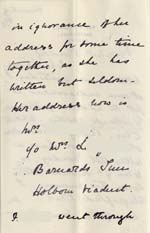 in ignorance of her
address for some time
together, as she has
written but seldom.
Her address now is
Mrs
c/o Mrs L
Barnards Inn
Holborn Viaduct.
I went through